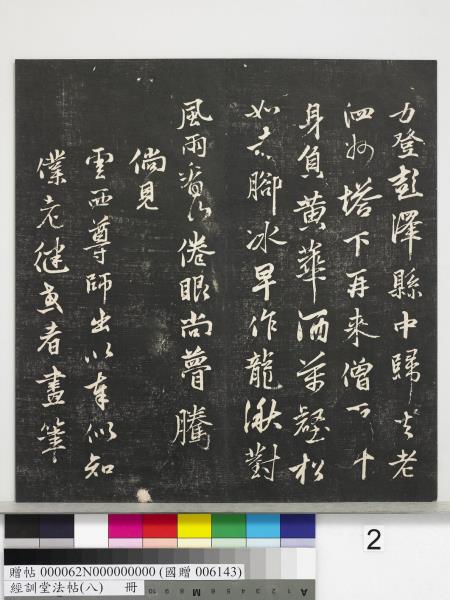 力登彭澤縣中歸去老
泗州塔下再来僧百千
身負黃華洒萬壑松
如赤腳冰早作龍湫對
風雨看山倦眼尚瞢騰
倘見
雲西尊師出以奉似知
僕老健者畫筆
2
贈帖 000062N000000000 (國贈 006143)
經訓堂法帖(八) 冊